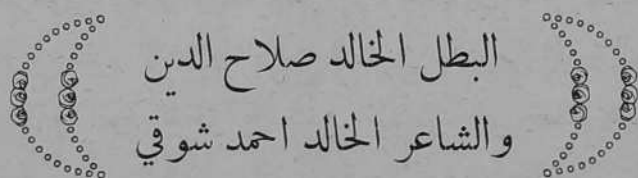 البطل الخالد صلاح الدين
والشاعر الخالد احمد شوقي